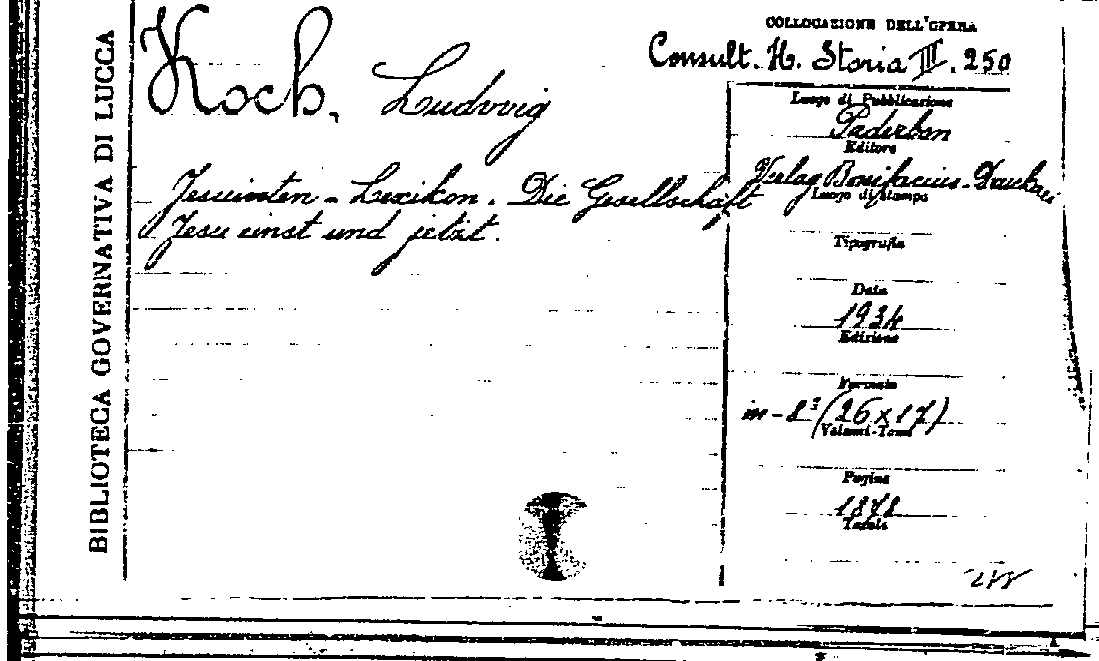 BIBLIOTECA GOVERNATIVA DI LUCCA
Koch, Ludwig
Jesuiten - Lexikon. Die Gesellschaft
Jesu einst und jetzt.
COLLOCAZIONE DELL'OPERA
Consult. H. Storia III. 250
Luogo di Pubblicazione
Paderbon
Editore
Verlag Bonifacius-Druckerei
Luogo di Stampa
Tipografia
Data
1934
Edizione
Formato
in-8³ (26x17)
Volumi-Tomi
Pagine
1878
Tavole